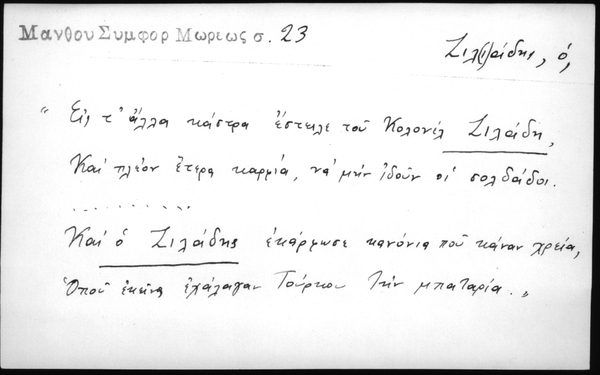 Μανθου Συμφορ Μωρεως σ. 23
Ζιλ(ι)άδης, ὁ,
" Εἰς τ' ἄλλα κάστρα ἔστειλε τοῦ Κολονέλ Ζιλάδη,
Καί πλέον ἕτερα καρμία, νά μήν ἰδοῦν οἱ σολδάδοι.
. . . . . . . . . .
Καί ὁ Ζιλάδης ἐκάρφωσε κανόνια ποῦ κάναν χρεία,
Ὁποῦ ἐκεῖνα ἐχάλαγαν Τούρκου τήν μπαταρία. "